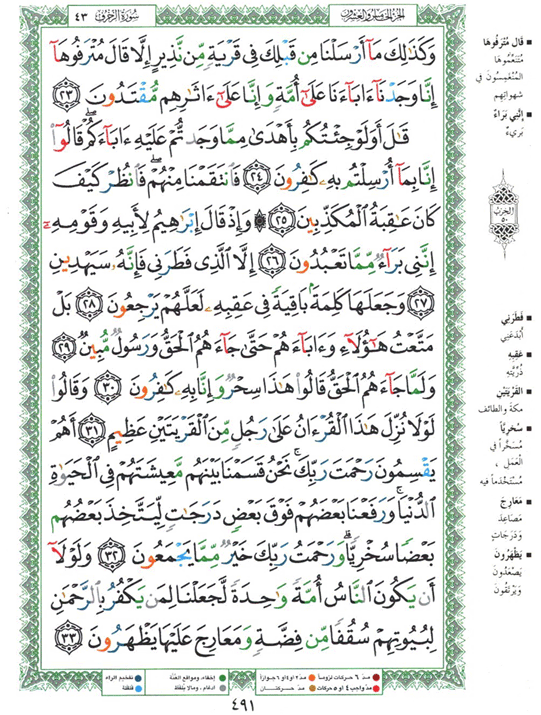 الجزء الخامس والعشرون
سورة الزخرف ٤٣
وَكَذَٰلِكَ مَآ أَرْسَلْنَا مِن قَبْلِكَ فِى قَرْيَةٍ مِّن نَّذِيرٍ إِلَّا قَالَ مُتْرَفُوهَآ
إِنَّا وَجَدْنَآ ءَابَآءَنَا عَلَىٰٓ أُمَّةٍ وَإِنَّا عَلَىٰٓ ءَاثَٰرِهِم مُّقْتَدُونَ ٢٣
قَٰلَ أَوَلَوْ جِئْتُكُم بِأَهْدَىٰ مِمَّا وَجَدتُّمْ عَلَيْهِ ءَابَآءَكُمْ ۖ قَالُوٓا۟
إِنَّا بِمَآ أُرْسِلْتُم بِهِۦ كَٰفِرُونَ ٢٤ فَٱنتَقَمْنَا مِنْهُمْ ۖ فَٱنظُرْ كَيْفَ
كَانَ عَٰقِبَةُ ٱلْمُكَذِّبِينَ ٢٥ ۞ وَإِذْ قَالَ إِبْرَٰهِيمُ لِأَبِيهِ وَقَوْمِهِۦٓ
إِنَّنِى بَرَآءٌ مِّمَّا تَعْبُدُونَ ٢٦ إِلَّا ٱلَّذِى فَطَرَنِى فَإِنَّهُۥ سَيَهْدِينِ
٢٧ وَجَعَلَهَا كَلِمَةًۢ بَاقِيَةً فِى عَقِبِهِۦ لَعَلَّهُمْ يَرْجِعُونَ ٢٨ بَلْ
مَتَّعْتُ هَٰٓؤُلَآءِ وَءَابَآءَهُمْ حَتَّىٰ جَآءَهُمُ ٱلْحَقُّ وَرَسُولٌ مُّبِينٌ ٢٩
وَلَمَّا جَآءَهُمُ ٱلْحَقُّ قَالُوا۟ هَٰذَا سِحْرٌ وَإِنَّا بِهِۦ كَٰفِرُونَ ٣٠ وَقَالُوا۟
لَوْلَا نُزِّلَ هَٰذَا ٱلْقُرْءَانُ عَلَىٰ رَجُلٍ مِّنَ ٱلْقَرْيَتَيْنِ عَظِيمٍ ٣١ أَهُمْ
يَقْسِمُونَ رَحْمَتَ رَبِّكَ ۚ نَحْنُ قَسَمْنَا بَيْنَهُم مَّعِيشَتَهُمْ فِى ٱلْحَيَوٰةِ
ٱلدُّنْيَا ۚ وَرَفَعْنَا بَعْضَهُمْ فَوْقَ بَعْضٍ دَرَجَٰتٍ لِّيَتَّخِذَ بَعْضُهُم
بَعْضًا سُخْرِيًّا ۗ وَرَحْمَتُ رَبِّكَ خَيْرٌ مِّمَّا يَجْمَعُونَ ٣٢ وَلَوْلَآ
أَن يَكُونَ ٱلنَّاسُ أُمَّةً وَٰحِدَةً لَّجَعَلْنَا لِمَن يَكْفُرُ بِٱلرَّحْمَٰنِ
لِبُيُوتِهِمْ سُقُفًا مِّن فِضَّةٍ وَمَعَارِجَ عَلَيْهَا يَظْهَرُونَ ٣٣
قَال مُتْرَفُوهَا
مُتَنَعِّمُوهَا
المُنْغَمِسُونَ فِي
شَهَواتِهِم
إِنَّنِي بَرَاءٌ
بَرِيءٌ
الحزب
٥٠
فَطَرَنِي
أَبْدَعَنِي
عَقِبِهِ
ذُرِّيَّتِهِ
القَرْيَتَيْنِ
مكة والطائف
سُخْرِيّاً
مُسَخَّراً فِي
العَمَلِ ،
مُسْتَخْدَماً فيه
مَعَارِجَ
مَصَاعِدَ
وَدَرَجَاتٍ
يَظْهَرُونَ
يَصْعَدُونَ
وَيَرْتَقُونَ
مدّ ٦ حركات لزوماً
مدّ ٢ أو ٤ أو ٦ جوازاً
إخفاء، ومواقع الغُنَّة
تفخيم الراء
مدّ واجب ٤ أو ٥ حركات
مدّ حركتان
إدغام، وما لا يُلفَظ
قلقلة
٤٩١